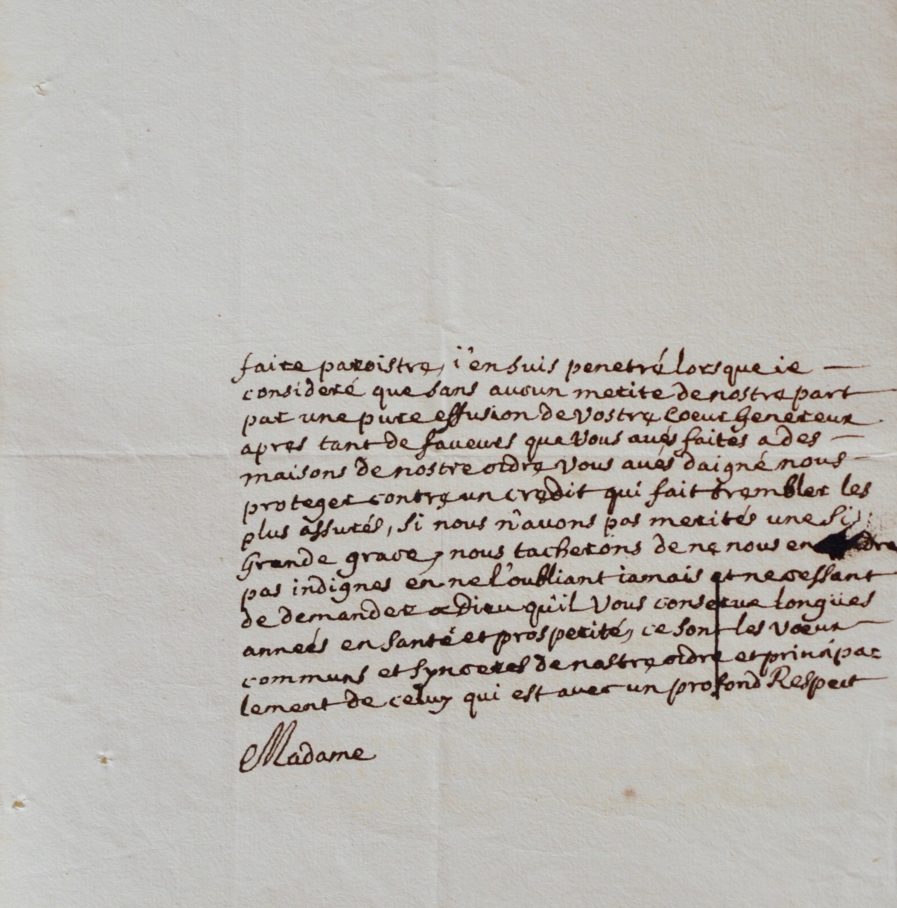 faire paroistre, i'en suis penetré lorsque ie —
consideré que sans aucun merite de nostre part
par une pure effusion de vostre Coeur Genereux
apres tant de faveurs que vous aués faites a des —
maisons de nostre ordre vous aués daigné nous —
proteger contre un credit qui fait trembler les
plus assurés, si nous n'avons pas merités une si
Grande grace, nous tacherons de ne nous en
pas indignes en ne l'oubliant iamais et ne cessant
de demander a Dieu qu'il vous conserve longües
années en santé et prosperité, ce sont les voeux —
communs et synceres de nostre ordre et principa=
lement de celuy qui est avec un profond Respect
Madame